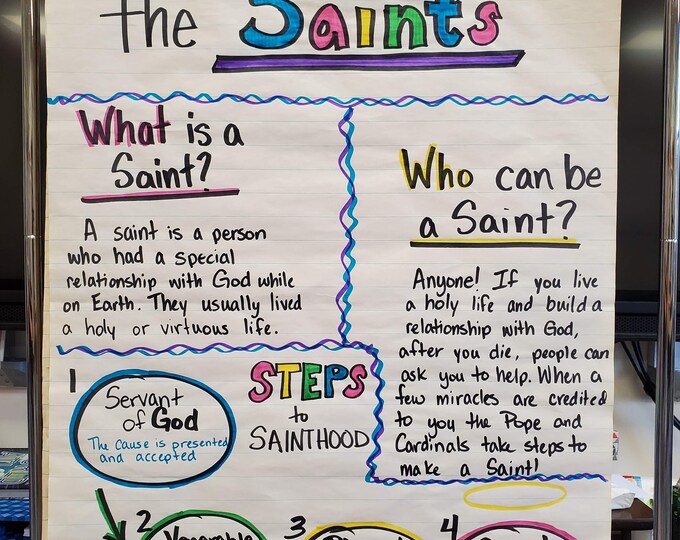 the Saints
What is a
Saint?
A saint is a person
who had a special
relationship with God while
on Earth. They usually lived
a holy or virtuous life.
Who can be
a Saint?
Anyone! If you live
a holy life and build a
relationship with God,
after you die, people can
ask you to help. When a
few miracles are credited
to you the Pope and
Cardinals take steps to
make a Saint!
STEPS
to
SAINTHOOD
1
Servant
of God
The cause is presented
and accepted
2
3
4